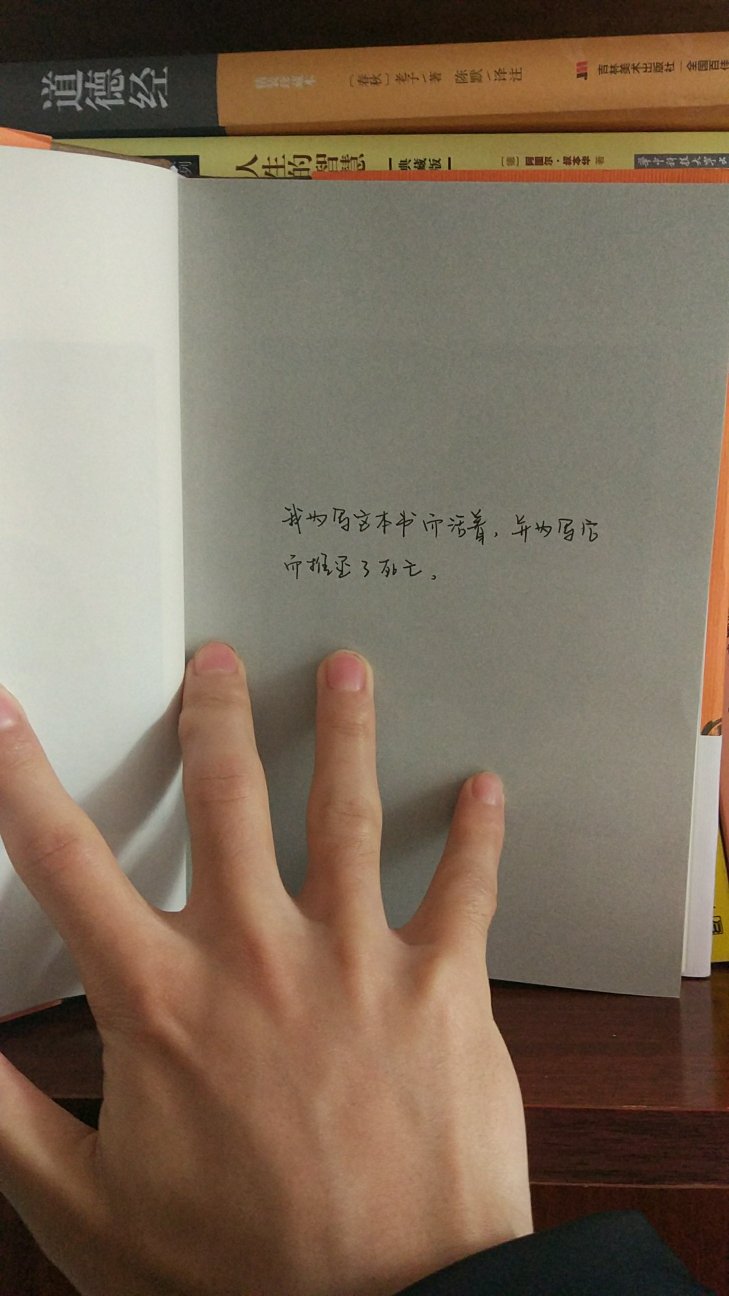 道德经 精装珍藏本 〔春秋〕老子/著 陈默/译注 吉林美术出版社 全国百佳
人生的智慧 典藏版 〔德〕阿图尔·叔本华 著 华中科技大学出
我为写这本书而活着,并为写它
而推迟了死亡。